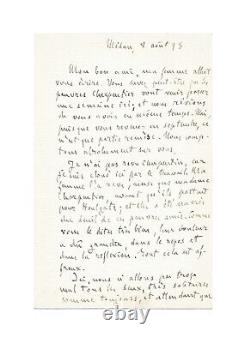 Médan, 8 août 95
Mon bon ami, ma femme allait
vous écrire. Vous avez peut-être su que les
pauvres Charpentier vont venir passer
une semaine ici, et nous rêvions
de vous avoir en même temps. Mais,
puisque vous revenez en septembre, ce
n'est que partie remise. Nous comptons
absolument sur vous.
Je n'ai pas revu Charpentier, car
je suis cloué ici par le travail. Ma
femme l'a revu, ainsi que madame
Charpentier, avant qu'ils partent
pour
au seuil de ce pauvre ami. Comme
vous le dites très bien, leur douleur
a dû grandir, dans le repos et
dans la réflexion. Tout cela est af-
freux.
Ici, nous n'allons pas trop
mal tous les deux, très solitaires
comme toujours, et attendant que